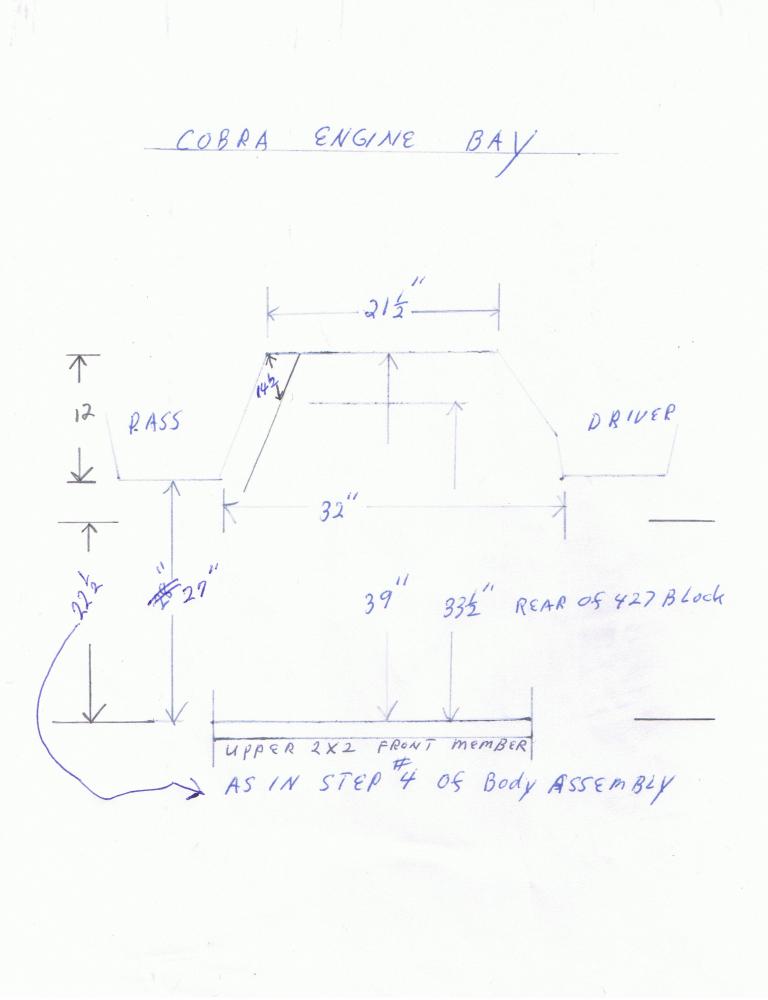 COBRA ENGINE BAY
21 1/2"
14 1/2
12
PASS
DRIVER
32"
22 1/2
27"
39"
33 1/2" REAR OF 427 BLOCK
UPPER 2X2 FRONT MEMBER
AS IN STEP #4 OF BODY ASSEMBLY